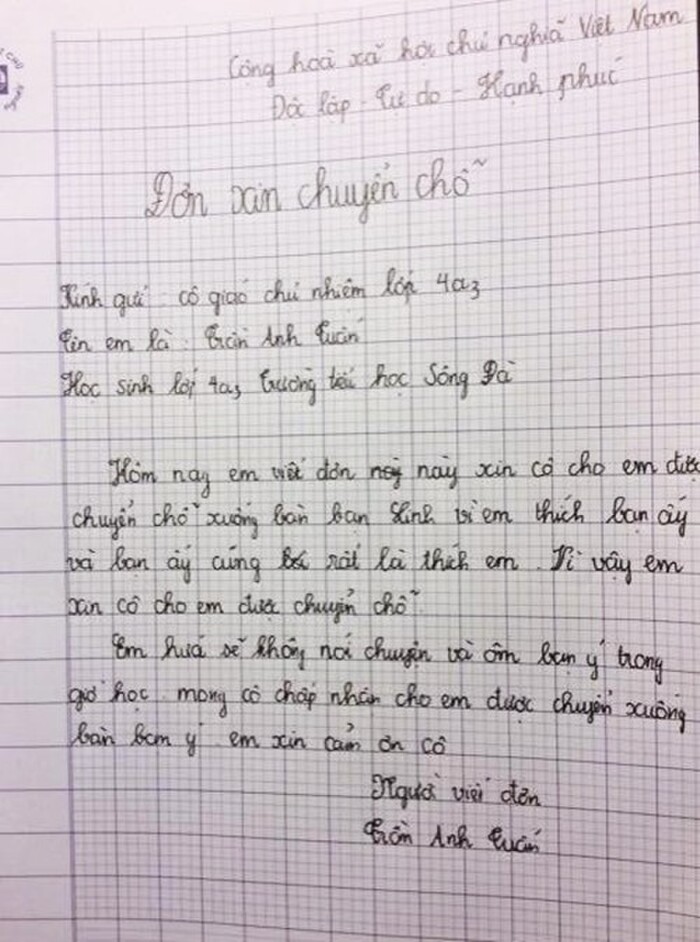 Cộng hoà xã hội chủ nghĩa Việt Nam
Độc lập - Tự do - Hạnh phúc
Đơn xin chuyển chỗ
Kính gửi: cô giáo chủ nhiệm lớp 4a3
Tên em là: Trần Anh Tuấn
Học sinh lớp 4a3 Trường tiểu học Sông Đà
Hôm nay em viết đơn này xin cô cho em được
chuyển chỗ xuống bàn bạn Linh vì em thích bạn ấy
và bạn ấy cũng rất là thích em. Vì vậy em
xin cô cho em được chuyển chỗ.
Em hứa sẽ không nói chuyện và ôm bạn ý trong
giờ học. mong cô chấp nhận cho em được chuyển xuống
bàn bạn ý em xin cảm ơn cô
Người viết đơn
Trần Anh Tuấn